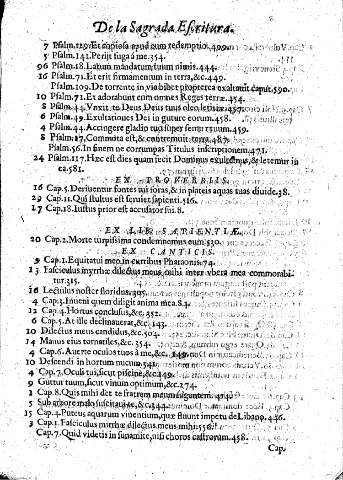 De la Sagrada Escritura.
7 Psalm.129.Et copiosa apud eum redemptio.499.
5 Psalm.141.Perijt fuga à me.354.
96 Psalm.18.Latum mandatum tuum nimis.444.
16 Psalm.71.Et erit firmamentum in terra,&c.449.
Psalm.109.De torrente in via bibet propterea exaltauit caput.590.
10 Psalm.71.Et adorabunt eum omnes Reges terræ.454.
8 Psalm.44.Vnxit te Deus Deus tuus oleo lætitiæ.457.
6 Psalm.49.Exultationes Dei in guture eorum.458.
4 Psalm.44.Accingere gladio tuo super femur tuum.459.
8 Psalm.17.Commota est,& contremuit terra.487.
Psalm.56.In finem ne corrumpas Tituli inscriptionem.471.
24 Psalm.117.Hæc est dies quam fecit Dominus exultemus,& letemur in
ea.581.
EX PROVERBIIS.
16 Cap.5.Deriuentur fontes tui foras,& in plateis aquas tuas diuide.38.
29 Cap.11.Qui stultus est seruiet sapienti.516.
27 Cap.18.Iustus prior est accusator sui.8.
EX LIB. SAPIENTIÆ.
20 Cap.2.Morte turpissima condemnemus eum.530.
EX CANTICIS.
9 Cap.1.Equitatui meo in curribus Pharaonis.74.
13 Fasciculus myrrhæ dilectus meus mihi inter vbera mea commorabi-
tur.315.
16 Lectulus noster floridus.305.
4 Cap.3.Inueni quem diligit anima mea.84.
12 Cap.4.Hortus conclusus,&c.352.
6 Cap.5.At ille declinauerat,&c.143.
10 Dilectus meus candidus,&c.
14 Manus eius tornatiles,&c.354.
4 Cap.6.Auerte oculos tuos à me,&c.
10 Descendi in hortum nucum.
4 Cap.7.Oculi tui,sicut piscinæ,&c.
9 Guttur tuum,sicut vinum optimum,&c.274.
1 Cap.8.Quis mihi det te fratrem meum
5 Sub arbore malo suscitaui te,&c.344.
15 Cap.4.Puteus aquarum viuentium,quæ fluunt impetu de Libano.446.
3 Cap.1.Fasciculus mirrhæ dilectus meus mihi.558.
Cap.7.Quid videtis in sunamite,nisi choros castrorum.458.
Cap.